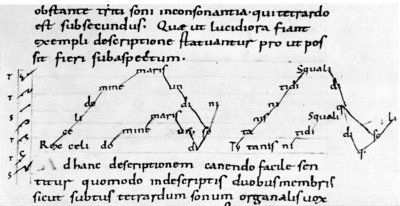 obstante triti soni inconsonantia. qui tetrardo
est subsecundus. Quę ut lucidiora fiant
exempli descriptione statuantur pro ut pos
sit fieri subaspectum.
maris Squali
mine un tidi
do di ni ni
li maris nis Squali li
ce mine un so ta tidi di so
Rex celi do di Ty tanis ni
d hanc descriptionem canendo facile sen
titur quomodo indescriptis duobus membris
sicut subtus tetrardum sonum organalis vox